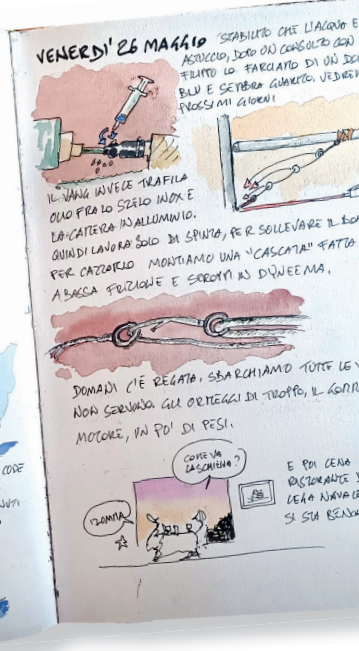 VENERDI' 26 MAGGIO STABILITO CHE L'ACQUA E
ASTUCCIO, DOPO UN CONSULTO CON
FILIPPO LO FARCIAMO DI UN
BLU E SEMBRA GUARITO. VEDRE
PROSSIMI GIORNI
IL VANG INVECE TRAFILA
OLIO FRA LO STELO INOX E
LA CAMERA IN ALLUMINIO.
QUINDI LAVORA SOLO DI SPINTA, PER SOLLEVARE IL BO
PER CAZZARLO MONTIAMO UNA "CASCATA" FATTA
A BASSA FRIZIONE E STROPPI IN DYNEEMA.
DOMANI C'È REGATA, SBARCHIAMO TUTTE LE V
NON SERVONO, GLI ORMEGGI DI TROPPO, IL GOMM
MOTORE, UN PO' DI PESI.
COME VA
LA SCHIENA?
IZOMMA
E POI CENA
RISTORANTE D
LEGA NAVALE
SI STA BENON
CODE
NUTI